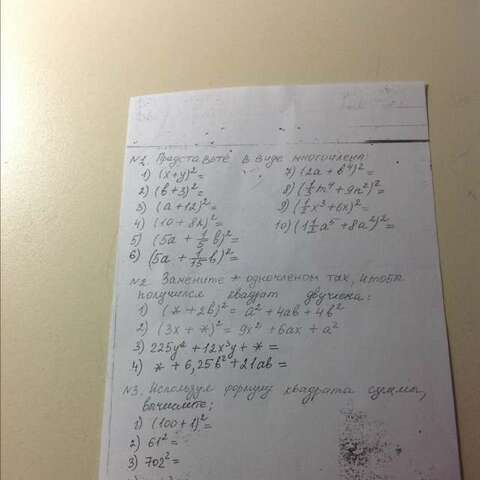 №1 Представьте в виде многочлена:
1) (x+y)²=
2) (b+3)²=
3) (a+12)²=
4) (10+8k)²=
5) (5a + 1/5 b)²=
6) (5a + 1/15 b)²=
7) (2a + b⁴)²=
8) (1/3 m⁴ + 9n²)²=
9) (x³+6x)²=
10) (1 1/2 a⁵ + 8a²)²=
№2 Замените * одночленом так, чтобы
получился квадрат двучлена:
1) (* + 2b)² = a² + 4ab + 4b²
2) (3x + *)² = 9x² + 6ax + a²
3) 225y² + 12x³y + * =
4) * + 6,25b² + 21ab =
№3. Используя формулу квадрата суммы,
вычислите:
1) (100+1)²=
2) 61²=
3) 702²=